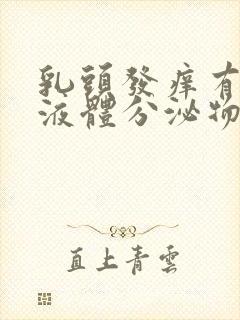 乳頭發痒有
液體分泌物
直上青雲